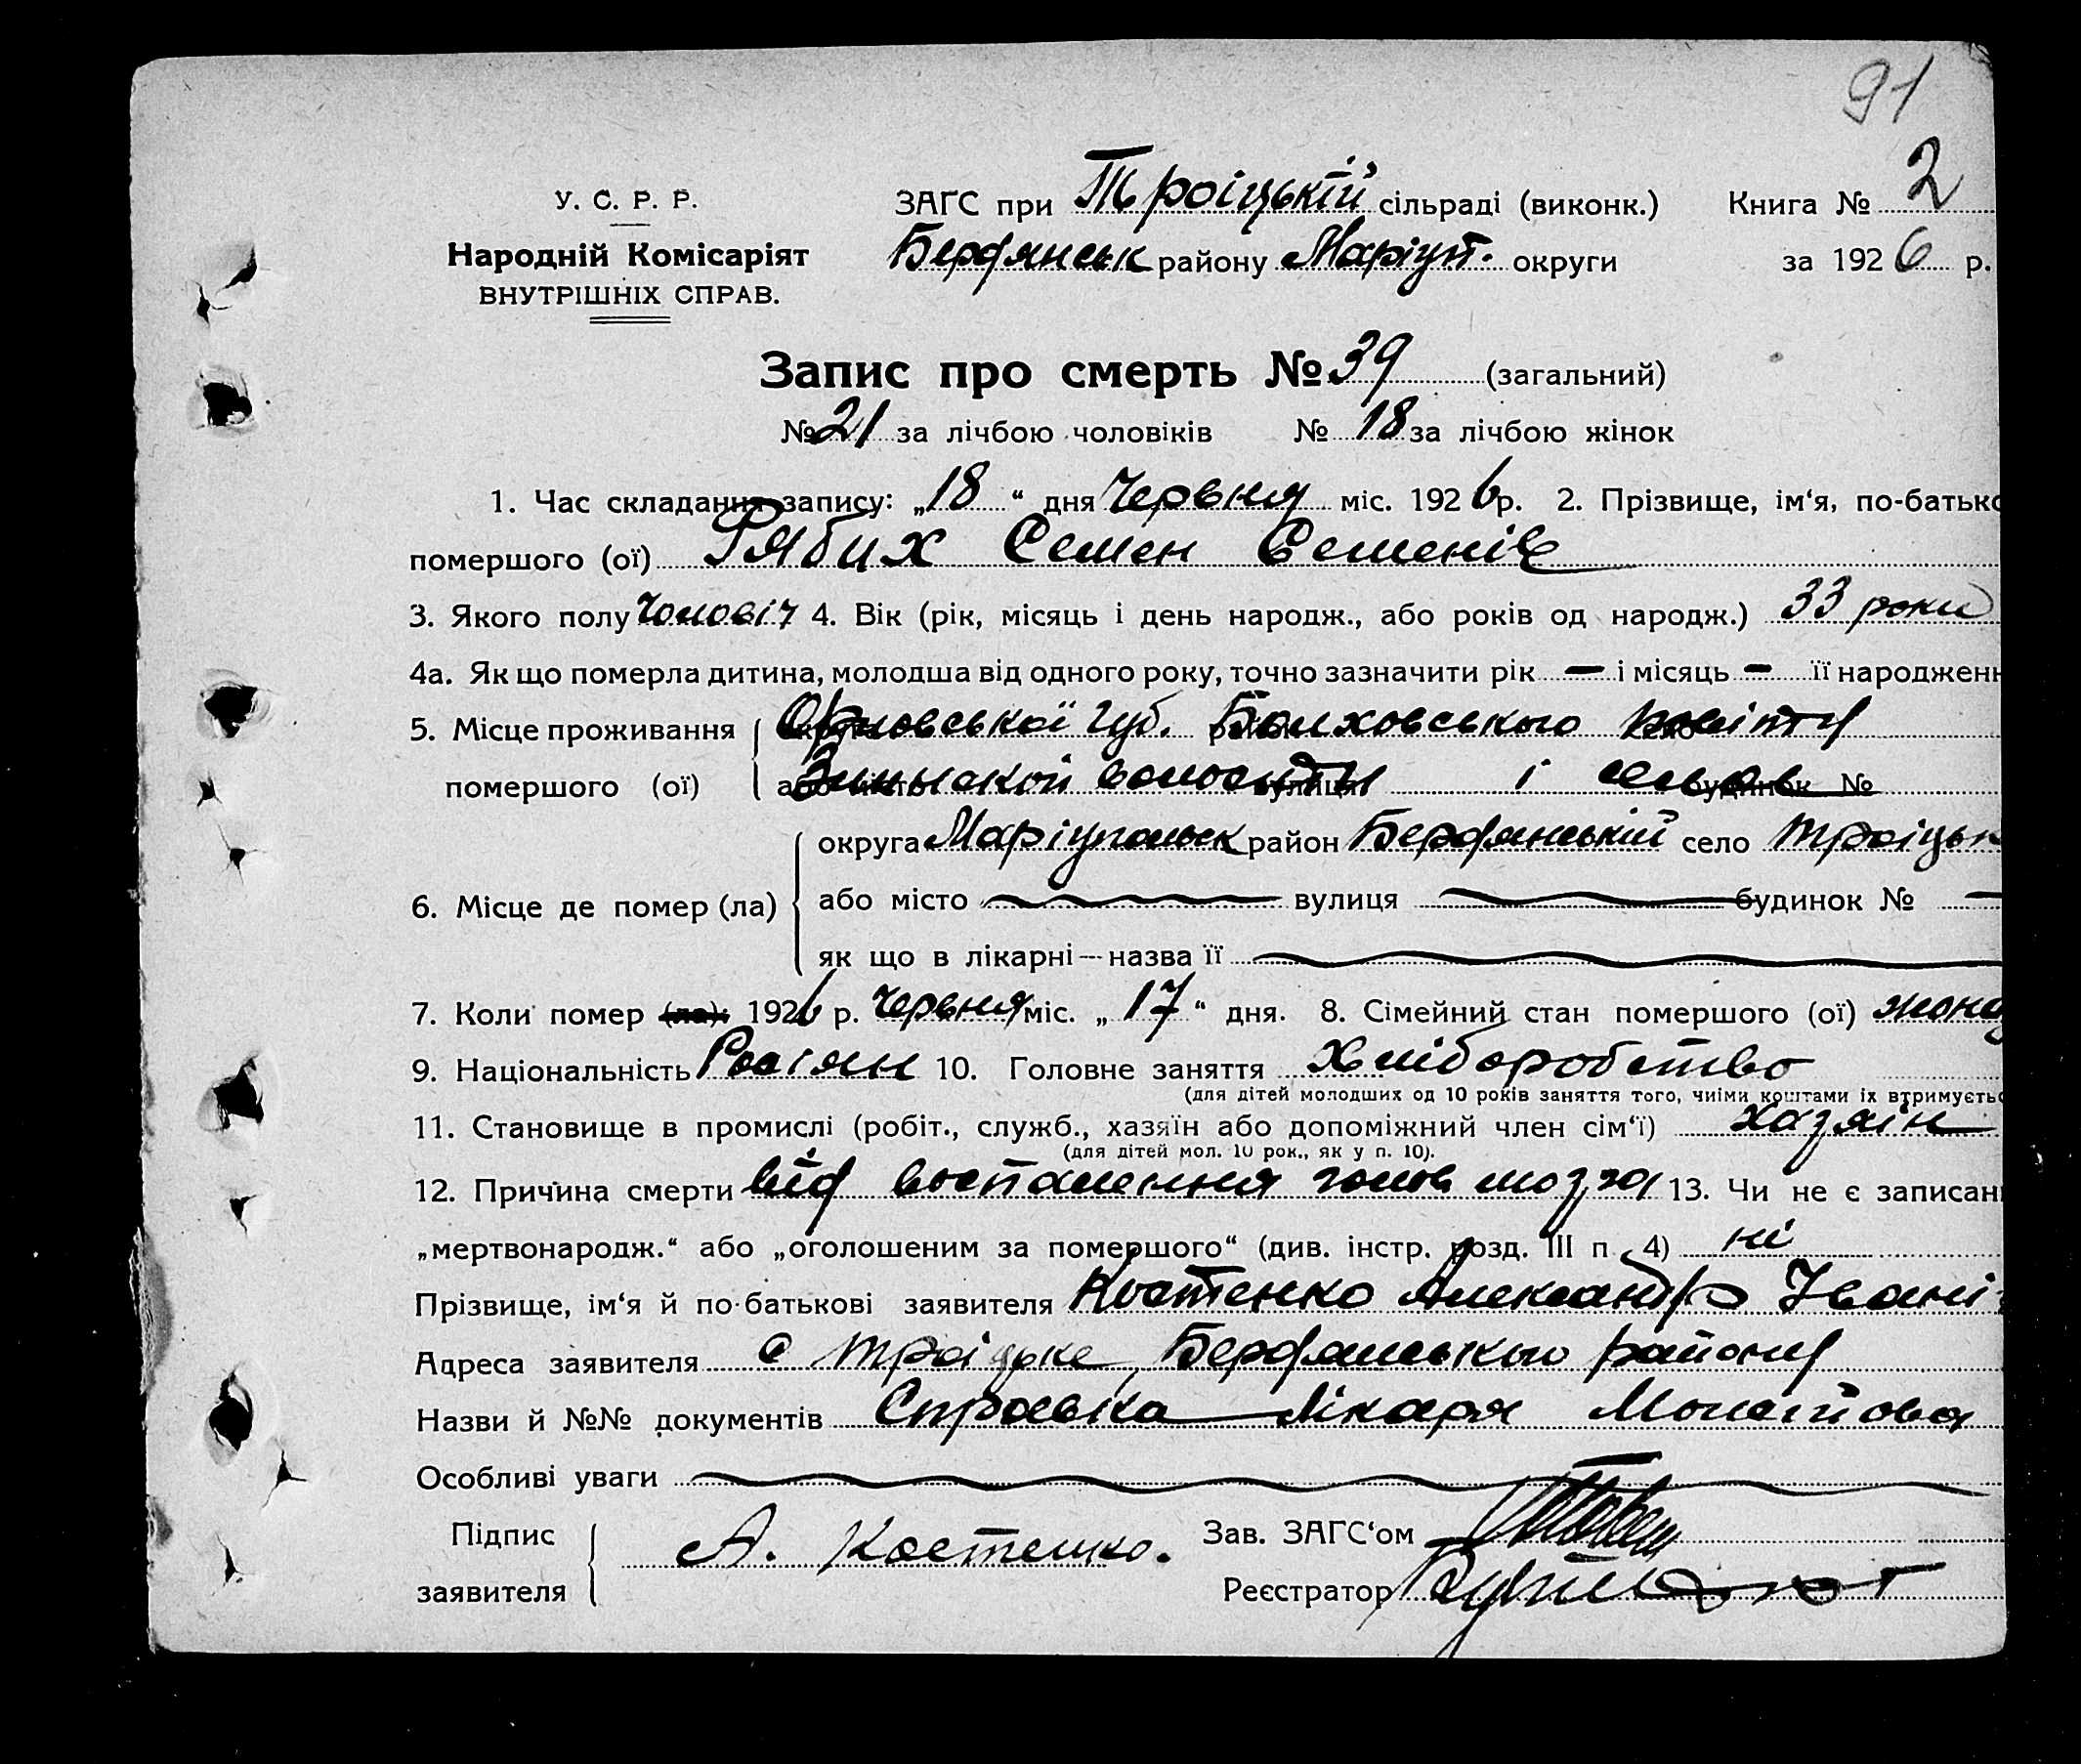 91
У. С. Р. Р.
Народній Комісаріят
ВНУТРІШНІХ СПРАВ.
ЗАГС при Троіцькій сільраді (виконк.) Книга № 2
Бердянськ району Маріуп. округи за 1926 р.
Запис про смерть № 39 (загальний)
№ 21 за лічбою чоловіків № 18 за лічбою жінок
1. Час складання запису: „18“ дня Червня міс. 1926 р. 2. Прізвище, ім‘я, по-батько
помершого (ої) Рябих Семен Семенів
3. Якого полу Чоловіч 4. Вік (рік, місяць і день народж., або років од народж.) 33 роки
4а. Як що померла дитина, молодша від одного року, точно зазначити рік — і місяць — її народженн
5. Місце проживання Орловської Губ. Болховського повіту
помершого (ої) волости і
6. Місце де помер (ла) округа Маріупольськ район Бердянській село Троіцьк
або місто вулиця будинок № —
як що в лікарні — назва її
7. Коли помер (ла): 1926 р. Червня міс. „17“ дня. 8. Сімейний стан помершого (ої) жона
9. Національність Росіян 10. Головне заняття Хліборобство
(для дітей молодших од 10 років заняття того, чиїми коштами їх втримуєтьс
11. Становище в промислі (робіт., служб., хазяїн або допоміжний член сім‘ї) хазяін
(для дітей мол. 10 рок., як у п. 10).
12. Причина смерти від воспалення голов мозга 13. Чи не є записан
„мертвонародж.“ або „оголошеним за помершого“ (див. інстр. розд. III п. 4) ні
Прізвище, ім‘я й по-батькові заявителя Костенко Александр Івані
Адреса заявителя с Троіцьке, Бердянського району
Назви й №№ документів Справка лікаря
Особливі уваги
Підпис заявителя А. Костенко. Зав. ЗАГС‘ом
Реєстратор